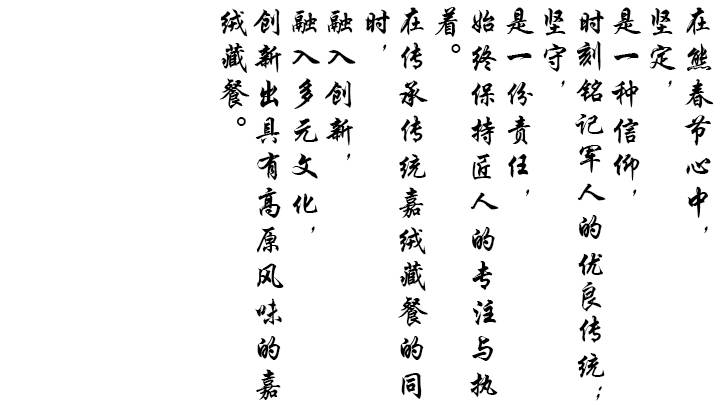 在熊春节心中，
坚定，
是一种信仰，
时刻铭记军人的优良传统；
坚守，
是一份责任，
始终保持匠人的专注与执
着。
在传承传统嘉绒藏餐的同
时，
融入创新，
融入多元文化，
创新出具有高原风味的嘉
绒藏餐。